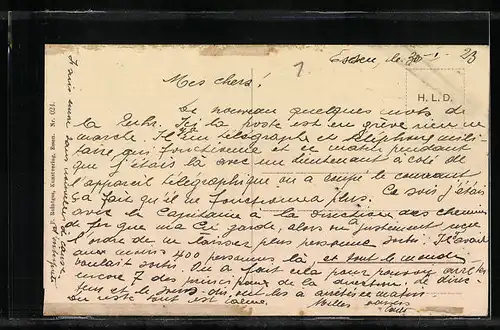 Essen, le 30-1-23
Mes chers!
H. L. D.
De nouveau quelques mots de
la Ruhr. Ici la poste est en grève rien ne
marche. Il y a un télégraphe et téléphone mili-
taire qui fonctionne et ce matin pendant
que j'étais là avec un lieutenant à côté de
l'appareil télégraphique on a coupé le courant
ça fait qu'il ne fonctionna plus. Ce soir j'étais
avec la Capitaine à la direction des chemins
de fer que ma Cie garde, alors on a justement reçu
l'ordre de ne laisser plus personne sortir. Il y avait
aux moins 400 personnes là, et tout le monde
voulait sortir. On a fait cela pour pouvoir arrêter
encore 7 des principaux de la direction. Le direc-
teur et le sous-dir. ont été arrêtés ce matin
Du reste tout est calme.
F. Rehagen, Kunstverlag, Essen. Nr. 024.